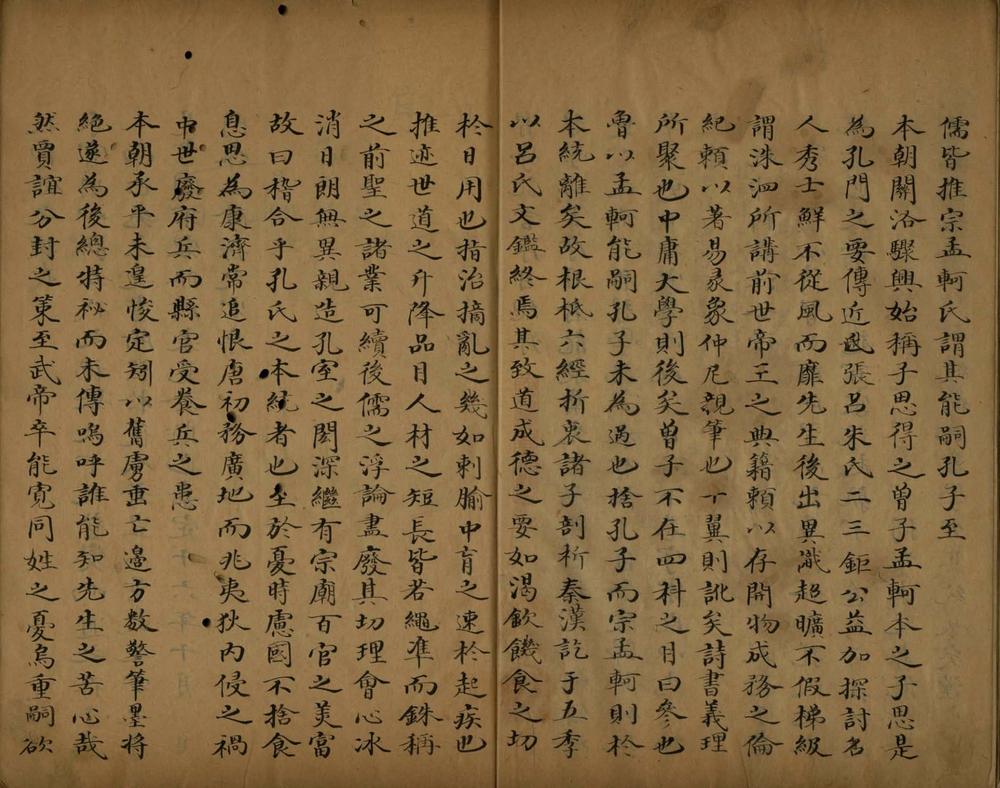 儒皆推宗孟軻氏謂其能嗣孔子至
本朝關洛驟興始稱子思得之曽子孟軻本之子思是
為孔門之要傳近世張呂朱氏二三鉅公益加探討名
人秀士鮮不從風而靡先生後出異識超曠不假梯級
謂洙泗所講前世帝王之典籍賴以存開物成務之倫
紀賴以著易彖象仲尼親筆也十翼則訛矣詩書義理
所聚也中庸大學則後矣曾子不在四科之目曰參也
魯以孟軻能嗣孔子未為過也捨孔子而宗孟軻則於
本統離矣故根柢六經折衷諸子剖析秦漢訖于五季
以呂氏文鑑終焉其致道成德之要如渴飲饑食之切
於日用也指治摘亂之幾如刺腧中肓之速於起疾也
推迹世道之升降品目人材之短長皆若繩準而銖稱
之前聖之諸業可續後儒之浮論盡廢其切理會心冰
消日朗無異親造孔室之閎深繼有宗廟百官之美富
故曰稽合乎孔氏之本統者也至於憂時慮國不捨食
息思為康濟常追恨唐初務廣地而兆夷狄內侵之禍
中世廢府兵而縣官受養兵之患
本朝承平未遑悛定矧以舊虜垂亡邊方數警筆墨將
絕遂為後總特祕而未傳嗚呼誰能知先生之苦心哉
然賈誼分封之策至武帝卒能寛同姓之憂烏重嗣欲